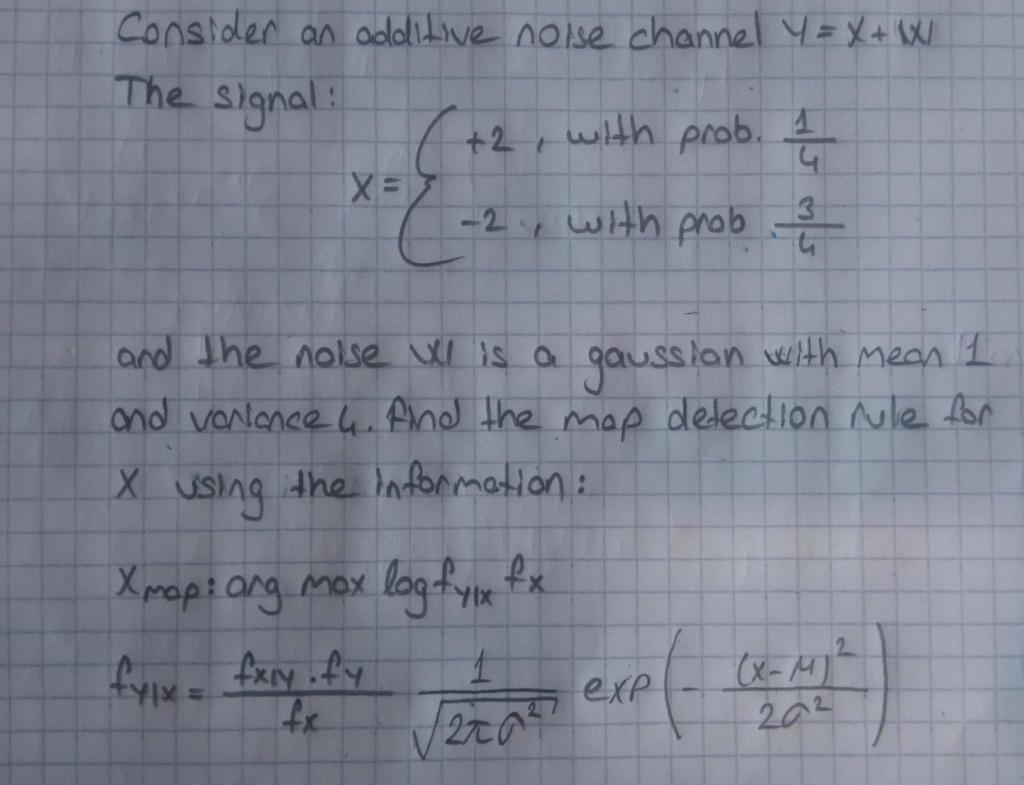 Consider an additive noise channel Y = X + W
The signal:
X = { +2 , with prob. 1/4
-2 , with prob. 3/4
and the noise W is a gaussian with mean 1
and variance 4. find the map detection rule for
X using the information:
X_map: arg max log f_{Y|X} f_X
f_{Y|X} = \frac{f_{X|Y} . f_Y}{f_X} \frac{1}{\sqrt{2πσ^2}} exp(-\frac{(x-μ)^2}{2σ^2})